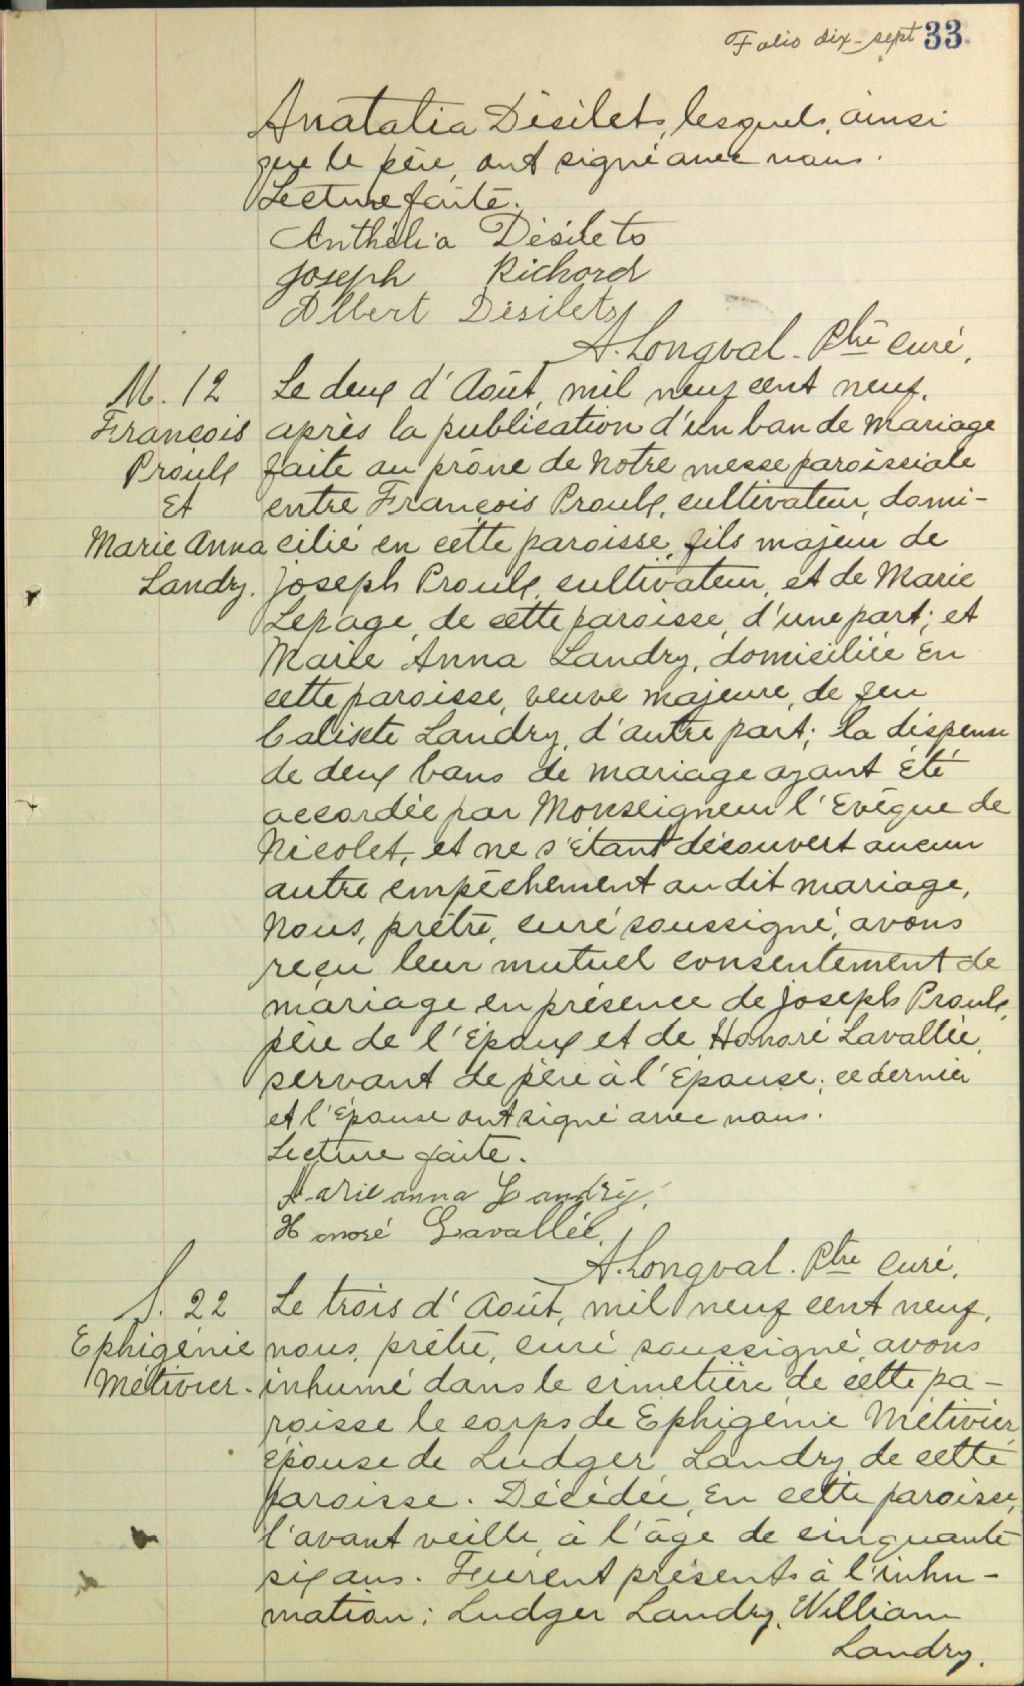 Folio dix-sept 33
Anatalia Désilets, lesquels, ainsi
que le père, ont signé avec nous.
Lecture faite.
Anthélia Désilets
Joseph Richard
Albert Désilets
A. Longval. Ptre curé.
M. 12 Le deux d'Août, mil neuf cent neuf,
François après la publication d'un ban de mariage
Proulx faite au prône de notre messe paroissiale
et entre François Proulx, cultivateur, domi-
Marie Anna cilié en cette paroisse, fils majeur de
Landry. Joseph Proulx, cultivateur, et de Marie
Lepage, de cette paroisse, d'une part; et
Marie Anna Landry, domiciliée en
cette paroisse, veuve majeure, de feu
Calixte Landry, d'autre part; la dispense
de deux bans de mariage ayant été
accordée par Monseigneur l'Evêque de
Nicolet, et ne s'étant découvert aucun
autre empêchement au dit mariage,
Nous, prêtre, curé soussigné, avons
reçu leur mutuel consentement de
mariage en présence de Joseph Proulx,
père de l'Epoux et de Honoré Lavallée,
servant de père à l'Epouse; ce dernier
et l'Epouse ont signé avec nous.
Lecture faite.
Marie anna Landry.
Honoré Lavallée
A. Longval. Ptre Curé.
S. 22 Le trois d'Août, mil neuf cent neuf,
Ephigénie nous, prêtre, curé soussigné, avons
Métivier. inhumé dans le cimetière de cette pa-
roisse le corps de Ephigénie Métivier,
Epouse de Ludger Landry de cette
paroisse. Décédée, en cette paroisse,
l'avant veille, à l'âge de cinquante
six ans. Furent présents à l'inhu-
mation: Ludger Landry, William
Landry.